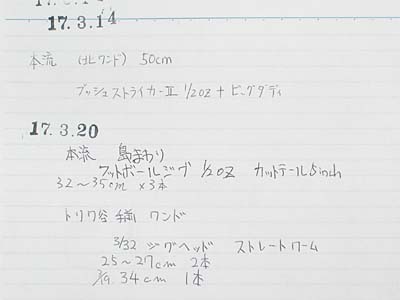 17.3.14
本流 (北ワンド) 50cm
ブッシュストライカーⅡ 1/2OZ + ビッグダディ
17.3.20
本流 島まわり
フットボールジグ 1/2OZ カットテール5inch
32～35cm ×3本
トリワ谷 ワンド
3/32 ジグヘッド ストレートワーム
25～27cm 2本
34cm 1本